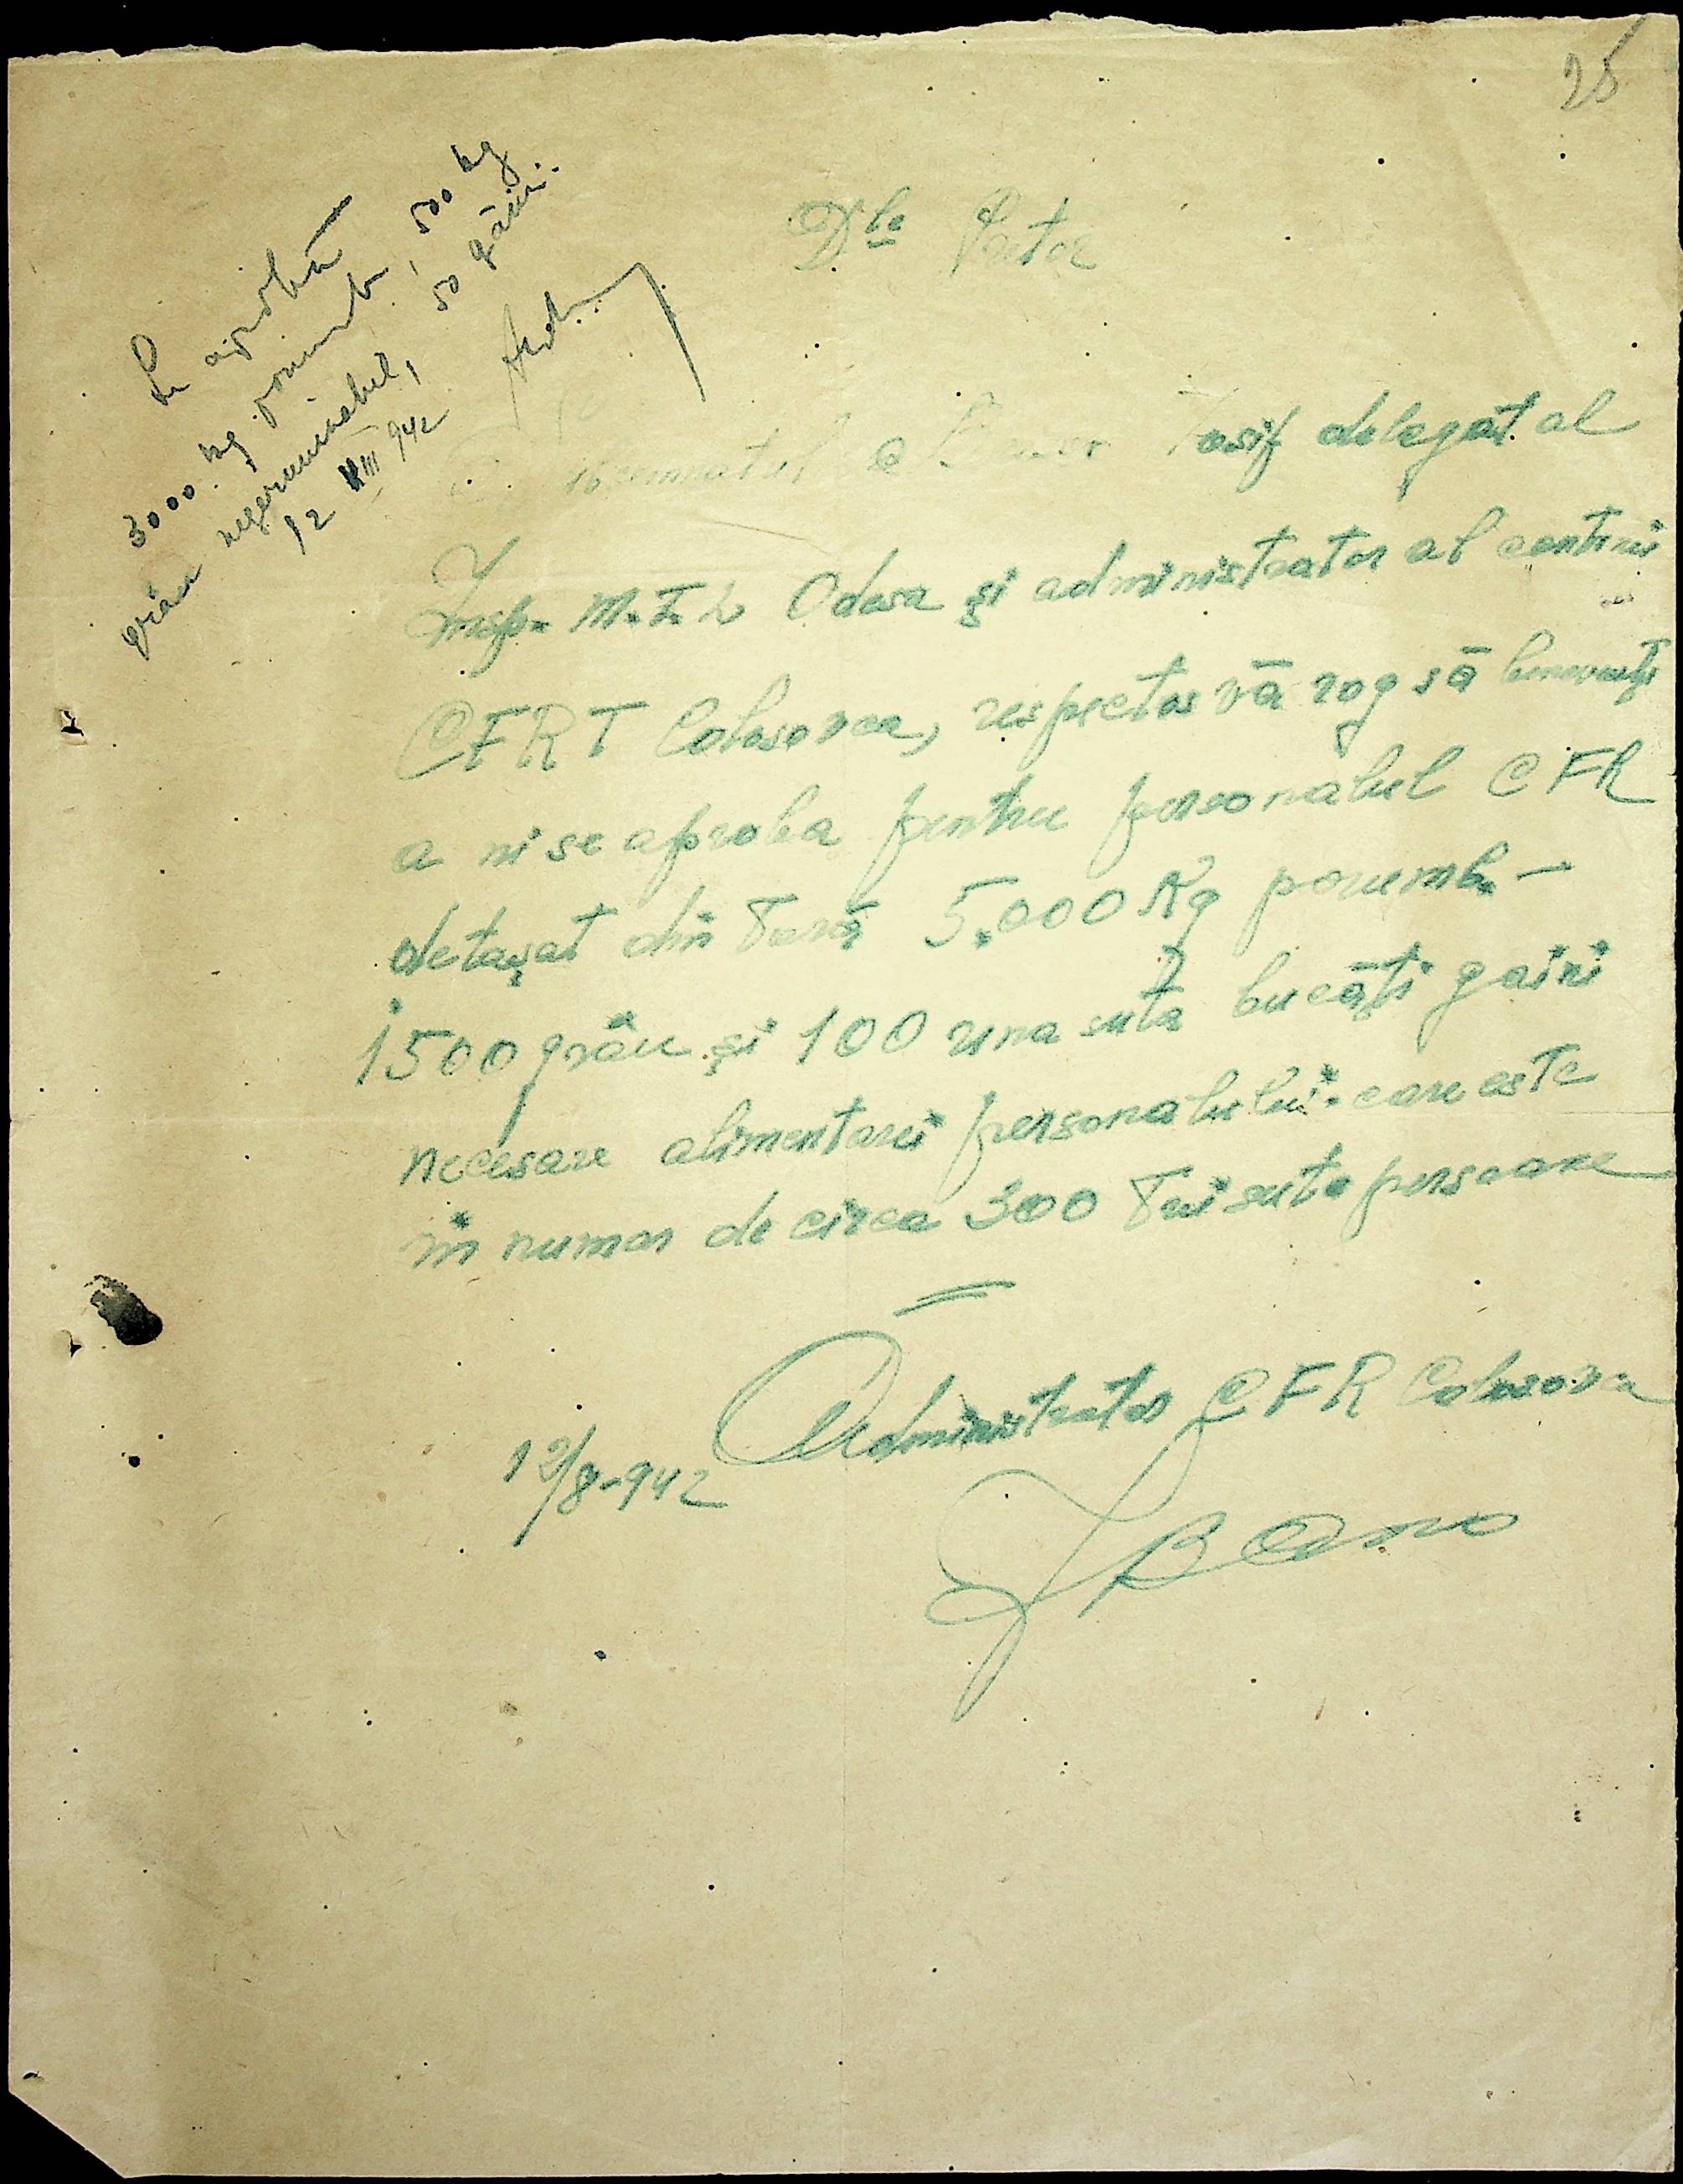 25
Se aprobă
3000 kg porumb, 500 kg
grâu negerminabil, 50 găini.
12 VIII 942
Dle Pretor
Iosif delegat al
Insp. M. T. L Odesa și administrator al cantinei
CFRT Colosovca, respectos vă rog să binevoiți
a ni se aproba pentru personalul CFR
detașat din Țară 5.000 Kg porumb. —
1500 grâu și 100 una sută bucăți gaini
necesare alimentarei personalului. care este
in numar de circa 300 Trei sute persoane
Administrator CFR Colosovca
12/8-942